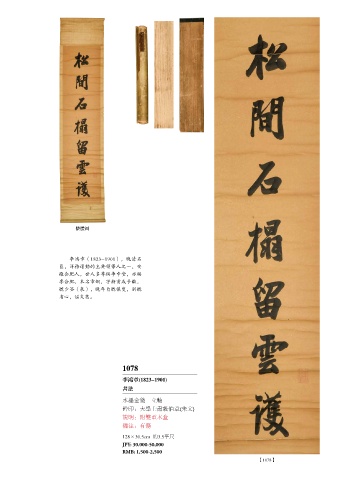 松間石榻留雲護
松間石榻留雲護
装裱图
李鴻章（1823-1901），晚清名
臣，洋務運動的主要領導人之一，安
徽合肥人，世人多尊稱李中堂，亦稱
李合肥，本名章銅，字漸甫或子黻，
號少荃（泉），晚年自號儀叟，別號
省心，諡文忠。
1078
李鴻章(1823-1901)
書法
水墨金箋 立軸
說明：附雙重木盒
備註：有霉
128×30.5cm 約3.5平尺
JPY: 30,000-50,000
RMB: 1,500-2,500
【1078】